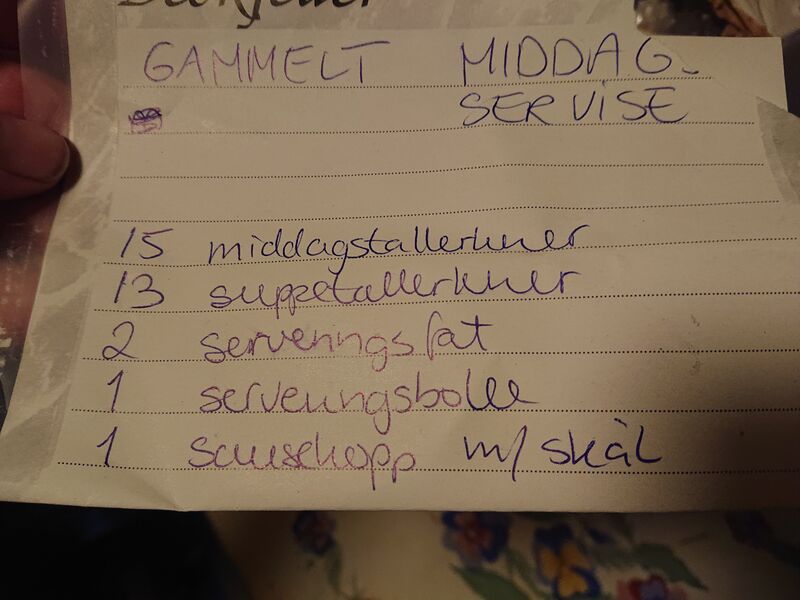 GAMMELT MIDDAGS
SERVISE
15 middagstallerkner
13 suppetallerkner
2 serveringsfat
1 serveringsbolle
1 sausekopp m/ skål